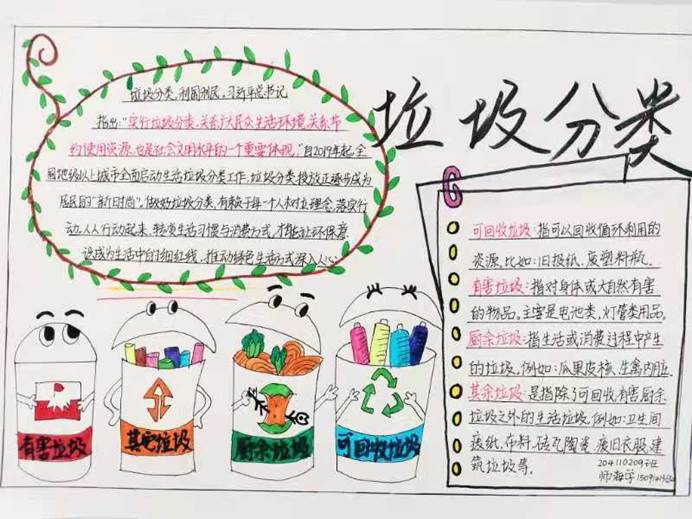 垃圾分类
垃圾分类,利国利民,习近平总书记
指出:"实行垃圾分类,关系广大民众生活环境,关系节
约使用资源,也是社会文明水平的一个重要体现。"自2019年起,全
国地级以上城市全面启动生活垃圾分类工作,垃圾分类投放正逐步成为
居民的"新时尚",做好垃圾分类,有赖于每一个人树立理念,落实行
动,人人行动起来,转变生活习惯与消费方式,才能让环保意
识成为生活中的细红线,推动绿色生活方式深入人心
可回收垃圾:指可以回收循环利用的
资源,比如:旧报纸、废塑料瓶。
有害垃圾:指对身体或大自然有害
的物品,主要是电池类,灯管类用品。
厨余垃圾:指生活或消费过程中产生
的垃圾,例如:瓜果皮核、生禽内脏
其余垃圾:是指除了可回收有害厨余
垃圾之外的生活垃圾,例如:卫生间
废纸、布料、磁瓦陶瓷、废旧衣服、建
筑垃圾等。
有害垃圾
其它垃圾
厨余垃圾
可回收垃圾